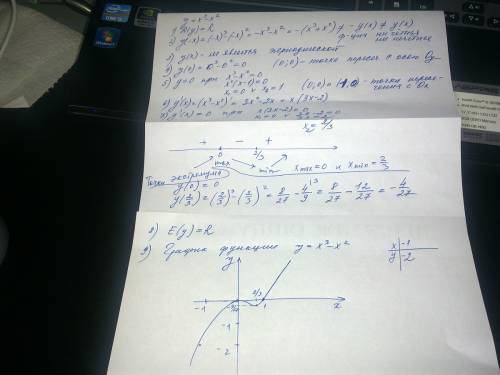 y = x³-x²
1) D(y)=R
2) y(-x)=(-x)³-(-x)²=-x³-x²=-(x³+x²)≠-y(x)≠y(x)
ф-ция ни четная
ни нечетная
3) y(x)- не является периодической
4) y(0)=0³-0²=0 (0;0)- точка пересеч. с осью Oy
5) y=0 при x³-x²=0
x²(x-1)=0
x₁=0 v x₂=1 (0;0) (1;0) - точки пересе-
чения с Ox
6) y'(x)=(x³-x²)'=3x²-2x=x(3x-2)
7) y'(x)=0 при x(3x-2)=0
x₁=0 v 3x-2=0
x₂=2/3
+ - +
0 2/3
max min x max=0 и x min=2/3
Точки экстремума
y(0)=0
y(2/3)=(2/3)³-(2/3)²=8/27-4/9=8/27-12/27=-4/27
8) E(y)=R
9) График функции y=x³-x²
x -1
y -2
y
2/3
-1 1 x
-1
-2